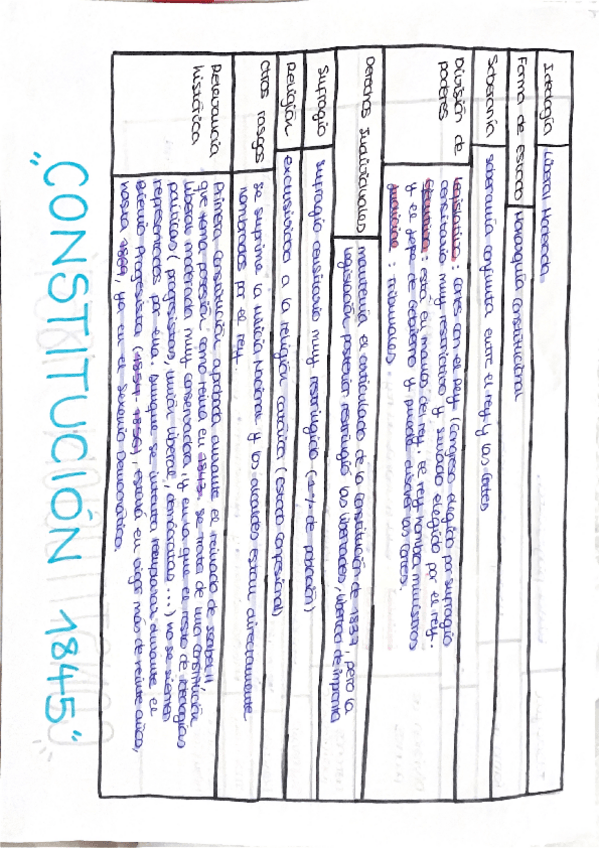 "CONSTITUCIÓN 1845"
Ideología
Liberal Moderada.
Forma de Estado
Monarquía Constitucional
Soberanía
Soberanía conjunta entre el rey y las Cortes
División de
poderes
Legislativo: Cortes con el Rey (Congreso elegido por sufragio
censitario muy restrictivo y Senado elegido por el rey.
Ejecutivo: está en manos del rey. El rey nombra ministros
y el jefe de Gobierno y puede disolver las Cortes.
Judicial: Tribunales.
Derechos Individuales
mantenía el articulado de la constitución de 1837, pero la
legislación posterior restringió las libertades, libertad de imprenta
Sufragio
Sufragio censitario muy restringido (1% de población)
Religión
exclusividad a la religión católica (Estado confesional)
Otros rasgos
Se suprime la Milicia Nacional y los alcaldes estarán directamente
nombrados por el rey.
Relevancia
histórica
Primera constitución aprobada durante el reinado de Isabel II,
que toma posesión como reina en 1843. Se trata de una constitución
liberal moderada muy conservadora, y en la que el resto de ideologías
políticas (progresistas, unión liberal, demócratas ...) no se sienten
representadas por ella. Aunque se intenta reemplazar durante el
Bienio Progresista (1854-1856), estará en vigor más de veinte años,
hasta 1869, ya en el Sexenio Democrático.